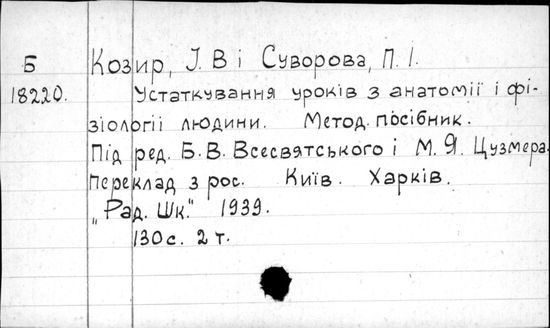 Б Козир, І. В і Суворова, П. І.
18220. Устаткування уроків з анатомії і фі-
зіології людини. Метод. посібник.
Під ред. Б. В. Всесвятського і М. Я. Цузмера.
Переклад з рос. Київ. Харків.
„Рад. Шк." 1939.
130 с. 2 т.